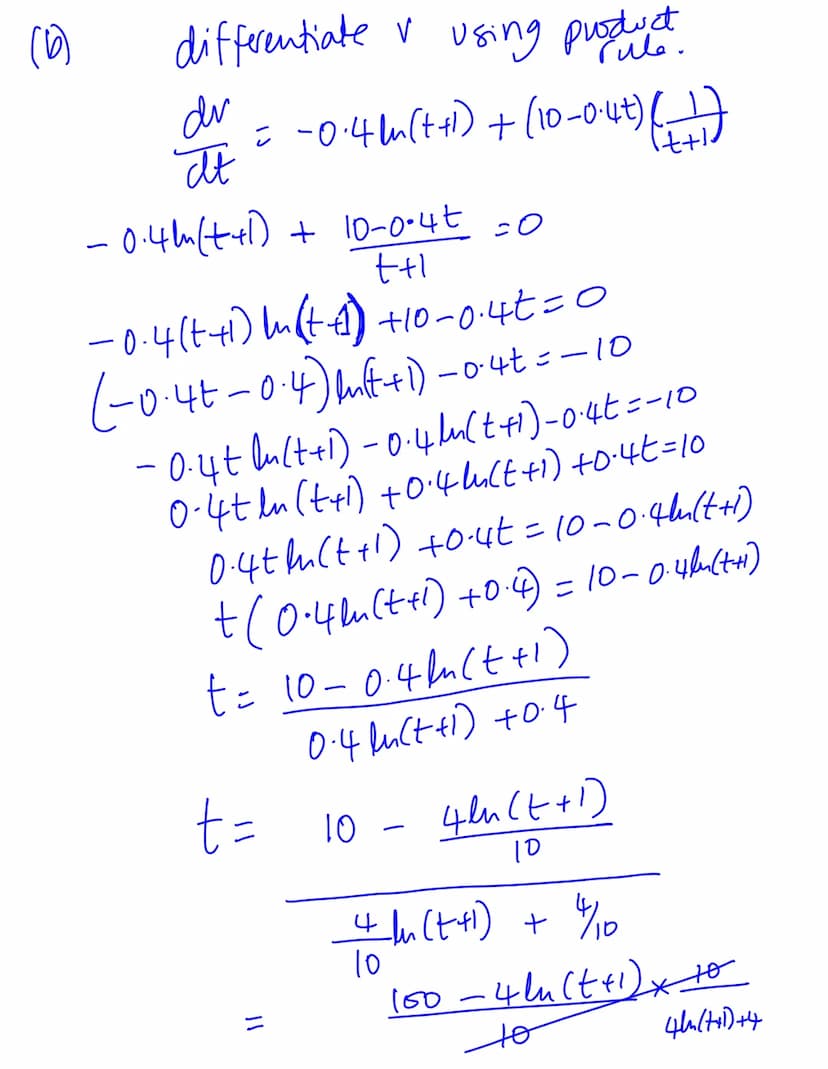 (b) differentiate v using product rule.
dv/dt = -0.4ln(t+1) + (10-0.4t)(1/t+1)
- 0.4ln(t+1) + 10-0.4t/t+1 = 0
-0.4(t+1)ln(t+1) +10-0.4t=0
(-0.4t-0.4)ln(t+1) -0.4t=-10
- 0.4t ln(t+1) -0.4ln(t+1)-0.4t=-10
0.4t ln(t+1) +0.4ln(t+1) +0.4t=10
0.4t ln(t+1) +0.4t = 10-0.4ln(t+1)
t(0.4ln(t+1) +0.4) = 10-0.4ln(t+1)
t= 10-0.4ln(t+1)/0.4ln(t+1) +0.4
t= 10 - 4ln(t+1)/10
4/10 ln(t+1) + 4/10
= 100-4ln(t+1)/10 × 10/4ln(t+1)+4